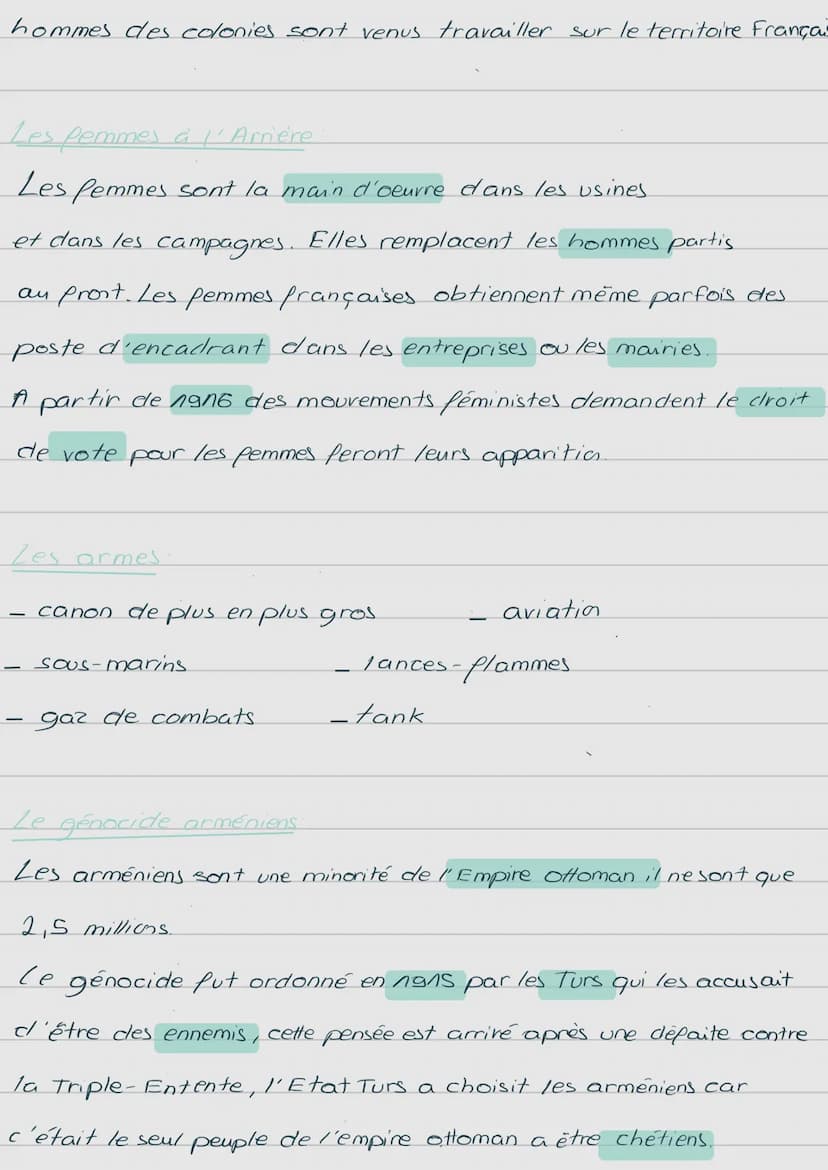 hommes des colonies sont venus travailler sur le territoire Françai
Les femmes à l'Arrière :
Les femmes sont la main d'oeuvre dans les usines
et dans les campagnes. Elles remplacent les hommes partis
au front. Les femmes françaises obtiennent même parfois des
poste d'encadrant dans les entreprises ou les mairies.
A partir de 1916 des mouvements féministes demandent le droit
de vote pour les femmes feront leurs apparition.
Les armes :
- canon de plus en plus gros - aviation
- sous-marins - lances-flammes
- gaz de combats - tank
Le génocide arméniens
Les arméniens sont une minorité de l'Empire Ottoman, il ne sont que
2,5 millions.
Le génocide fut ordonné en 1915 par les Turs qui les accusait
d'être des ennemis, cette pensée est arrivé après une défaite contre
la Triple-Entente, l'Etat Turs a choisit les arméniens car
c'était le seul peuple de l'empire ottoman a être chétiens.